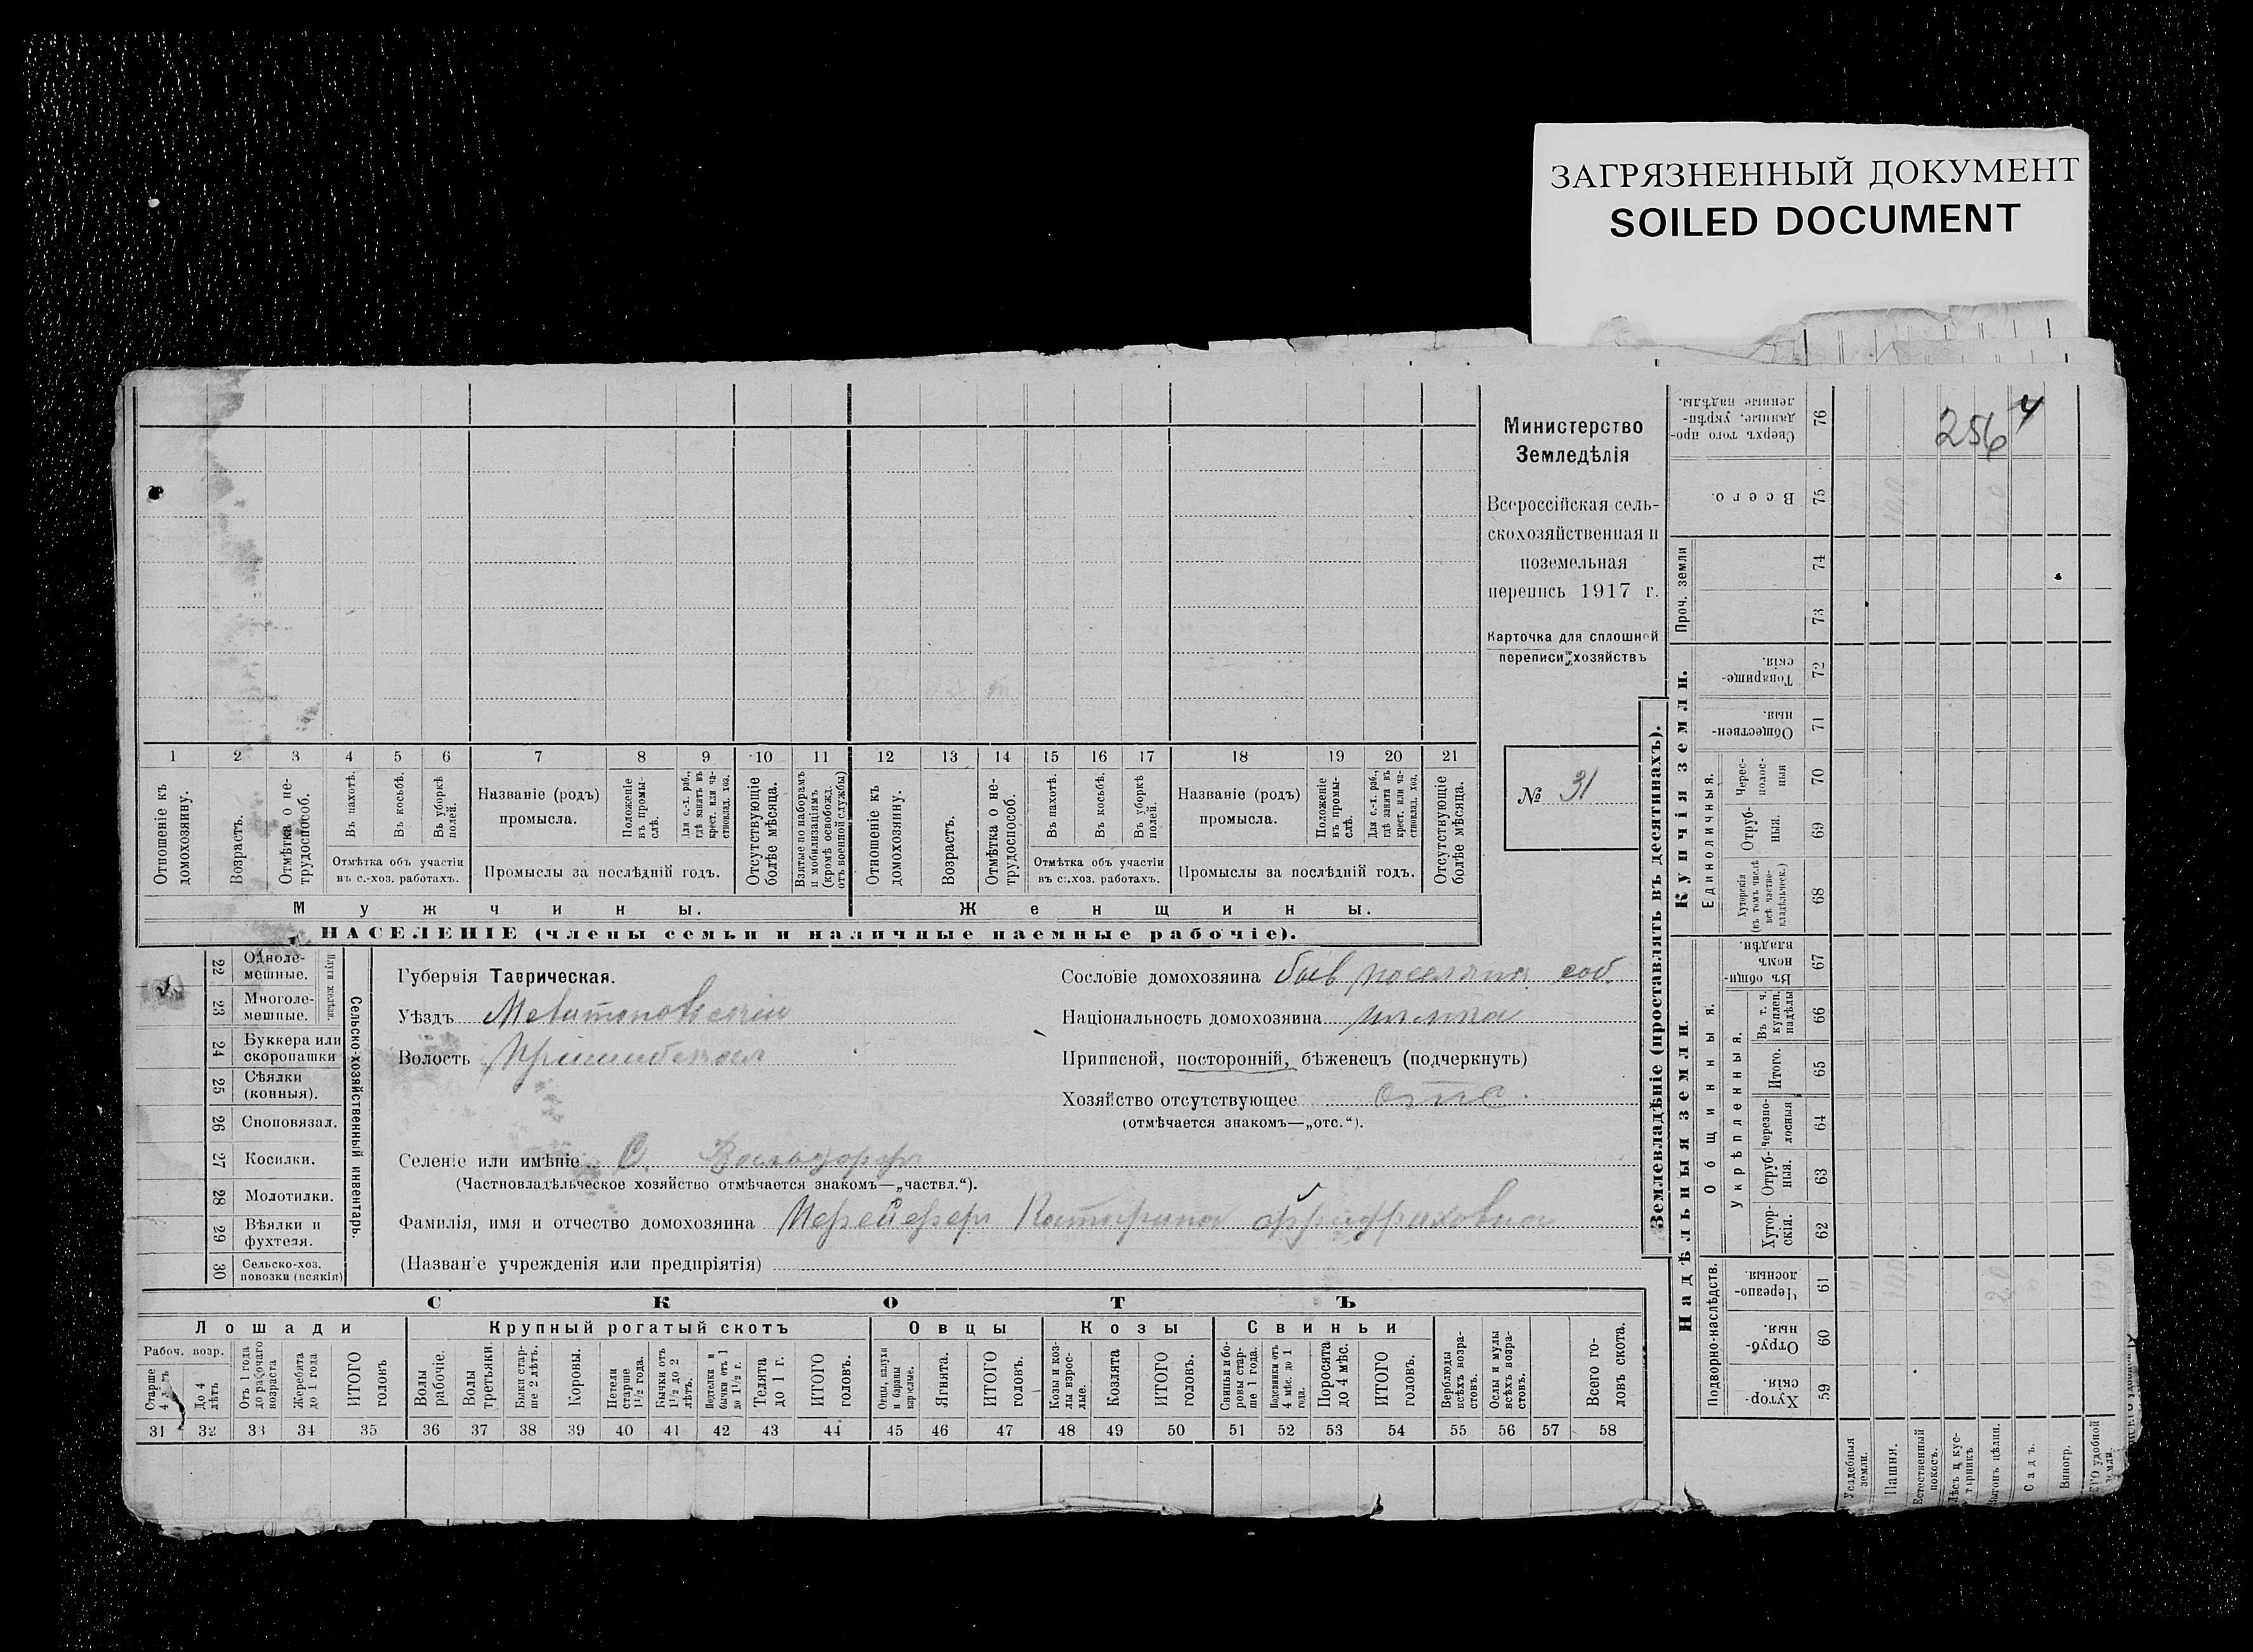 ЗАГРЯЗНЕННЫЙ ДОКУМЕНТ
SOILED DOCUMENT
256
4
Министерство
Земледѣлія
Всероссійская сель-
скохозяйственная и
поземельная
перепись 1917 г.
Карточка для сплошной
переписи хозяйствъ
№ 31
1 2 3 4 5 6 7 8 9 10 11 12 13 14 15 16 17 18 19 20 21
Отношеніе къ домохозяину.
Возрастъ.
Отмѣтка о не-трудоспособ.
Въ пахотѣ.
Въ косьбѣ.
Въ уборкѣ полей.
Отмѣтка объ участіи
въ с.-хоз. работахъ.
Названіе (родъ)
промысла.
Положеніе въ промы-слѣ.
Для с.-х. раб., гдѣ занятъ въ крест. или ча-стновлад. хоз.
Промыслы за послѣдній годъ.
Отсутствующіе болѣе мѣсяца.
Взятые по наборамъ и мобилизаціямъ (кромѣ освобожд. отъ военной службы)
Отношеніе къ домохозяину.
Возрастъ.
Отмѣтка о не-трудоспособ.
Въ пахотѣ.
Въ косьбѣ.
Въ уборкѣ полей.
Отмѣтка объ участіи
въ с.-хоз. работахъ.
Названіе (родъ)
промысла.
Положеніе въ промы-слѣ.
Для с.-х. раб., гдѣ занята въ крест. или ча-стновлад. хоз.
Промыслы за послѣдній годъ.
Отсутствующіе болѣе мѣсяца.
Мужчины.
Женщины.
НАСЕЛЕНІЕ (члены семьи и наличные наемные рабочіе).
22 Одноле-мешные.
23 Многоле-мешные.
Плуги желѣзн.
24 Буккера или скоропашки
25 Сѣялки (конныя).
26 Сноповязал.
27 Косилки.
28 Молотилки.
29 Вѣялки и фухтеля.
30 Сельско-хоз. повозки (всякія)
Сельско-хозяйственный инвентарь.
Губернія Таврическая.
Уѣздъ Мелитопольскій
Волость Пришибская
Сословіе домохозяина быв поселянин соб.
Національность домохозяина немка
Приписной, посторонній, бѣженецъ (подчеркнуть)
Хозяйство отсутствующее отс.
(отмѣчается знакомъ—„отс.“).
Селеніе или имѣніе С. Вальдорфъ
(Частновладѣльческое хозяйство отмѣчается знакомъ—„частвл.“).
Фамилія, имя и отчество домохозяина Пфейферъ Катарина
(Названіе учрежденія или предпріятія)
СКОТЪ
Лошади
Крупный рогатый скотъ
Овцы
Козы
Свиньи
Рабоч. возр.
Старше 4 лѣтъ
До 4 лѣтъ
Отъ 1 года до рабочаго возраста
Жеребята до 1 года
ИТОГО головъ
Волы рабочіе.
Волы третьяки.
Быки стар-ше 2 лѣтъ.
Коровы.
Нетели старше 1½ года.
Бычки отъ 1½ до 2 лѣтъ.
Подтелки и бычки отъ 1 до 1½ г.
Телята до 1 г.
ИТОГО головъ.
Овцы, валухи и бараны взрослые.
Ягнята.
ИТОГО головъ.
Козы и коз-лы взрос-лые.
Козлята
ИТОГО головъ.
Свиньи и бо-ровы стар-ше 1 года.
Подсвинки отъ 4 мѣс. до 1 года.
Поросята до 4 мѣс.
ИТОГО головъ.
Верблюды всѣхъ возра-стовъ.
Ослы и мулы всѣхъ возра-стовъ.
Всего го-ловъ скота.
31 32 33 34 35 36 37 38 39 40 41 42 43 44 45 46 47 48 49 50 51 52 53 54 55 56 57 58
Землевладѣніе (проставлять въ десятинахъ).
Надѣльныя земли.
Купчія земли.
Проч. земли
Подворно-наслѣдств.
Общинныя.
Укрѣпленныя.
Единоличныя.
59 Хутор-скія.
60 Отруб-ныя.
61 Черезпо-лосныя.
62 Хутор-скія.
63 Отруб-ныя.
64 Черезпо-лосныя
65 Итого.
66 Въ т. ч. куплен. надѣлы
67 Въ общи-номъ владѣн.
68 Хуторскія (въ томъ числѣ всѣ частно-владѣльческ.)
69 Отруб-ныя.
70 Черес-полос-ныя
71 Обществен-ныя.
72 Товарище-скія.
73
74
75 Всего.
76 Сверхъ того про-данные, укрѣп-ленные надѣлы.
Усадебныя земли.
Пашня.
Естественный покосъ.
Лѣсъ и кус-тарникъ
Выгонъ цѣлин.
Садъ.
Виногр.
удобной земли.